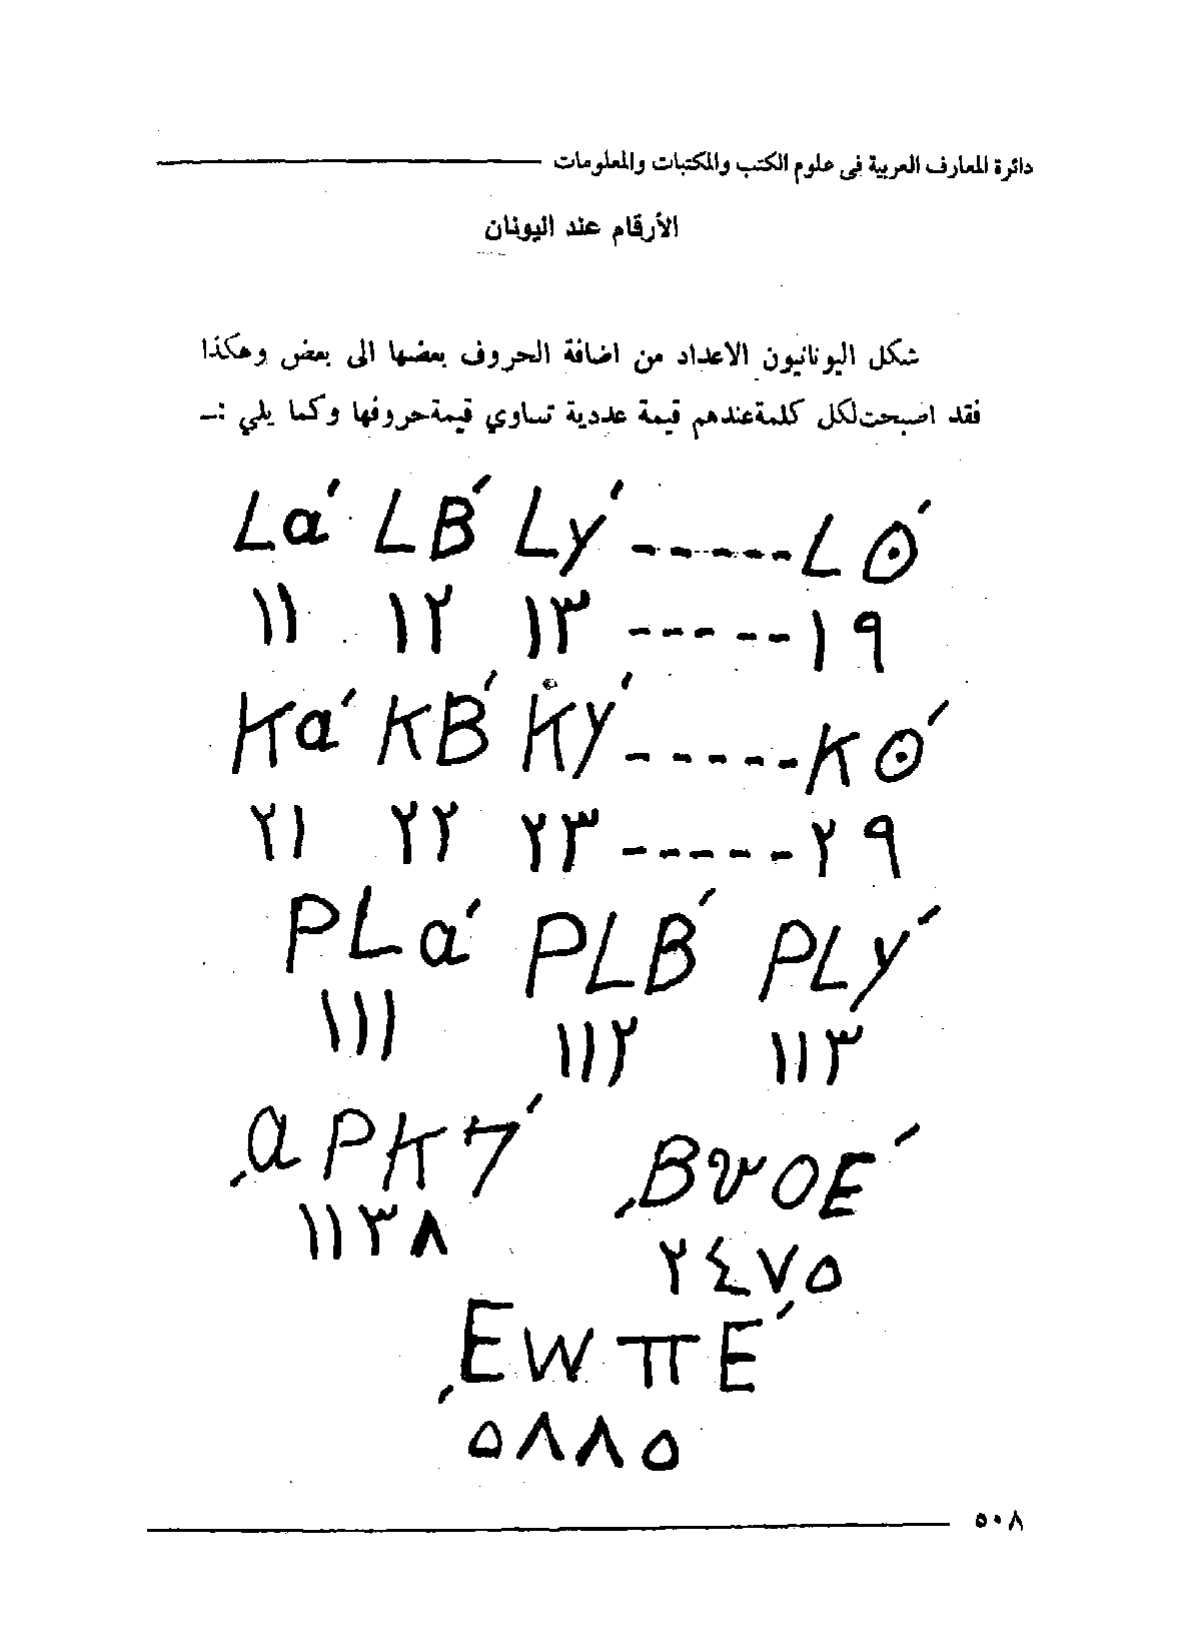 دائرة المعارف العربية فى علوم الكتب والمكتبات والمعلومات
الأرقام عند اليونان
شكل اليونانيون الاعداد من اضافة الحروف بعضها الى بعض وهكذا
فقد اصبحت لكل كلمة عندهم قيمة عددية تساوي قيمة حروفها وكما يلي :ـ
La′ LB′ Ly′ ----- LΘ′
١١ ١٢ ١٣ ----- ١٩
Ka′ KB′ Ky′ ----- KΘ′
٢١ ٢٢ ٢٣ ----- ٢٩
PLa′ PLB′ PLy′
١١١ ١١٢ ١١٣
͵aPK7′ ͵BϑOE′
١١٣٨ ٢٤٧٥
͵EWπE′
٥٨٨٥
٥٠٨